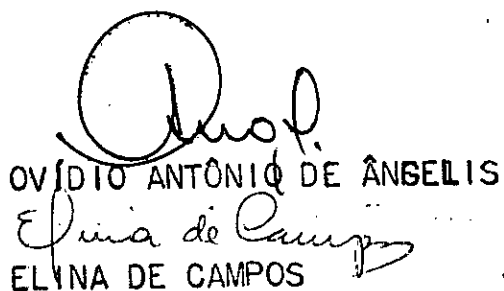 OVÍDIO ANTÔNIO DE ÂNGELIS
Elina de Campos
ELINA DE CAMPOS